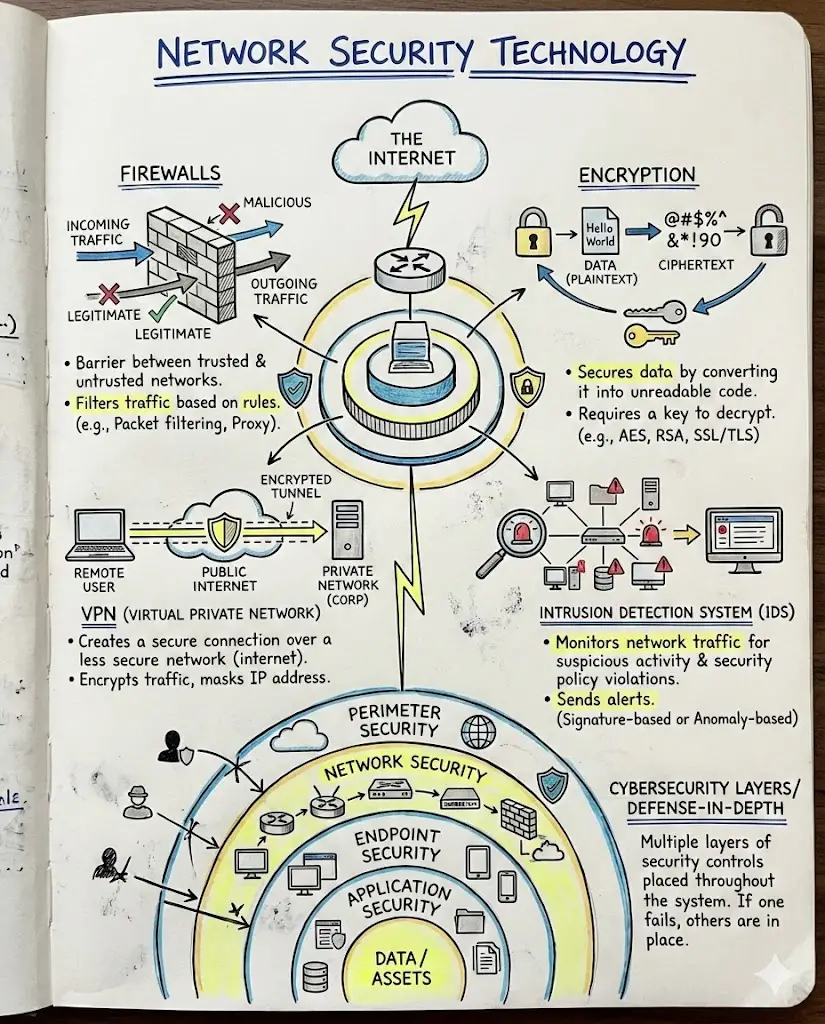 NETWORK SECURITY TECHNOLOGY
THE
INTERNET
FIREWALLS
INCOMING
TRAFFIC
MALICIOUS
OUTGOING
TRAFFIC
LEGITIMATE
LEGITIMATE
• Barrier between trusted &
untrusted networks.
• Filters traffic based on rules.
(e.g., Packet filtering, Proxy).
ENCRYPTION
Hello
World
DATA
(PLAINTEXT)
@#$%^
&*!90
CIPHERTEXT
• Secures data by converting
it into unreadable code.
• Requires a key to decrypt.
(e.g., AES, RSA, SSL/TLS)
ENCRYPTED
TUNNEL
REMOTE
USER
PUBLIC
INTERNET
PRIVATE
NETWORK
(CORP)
VPN (VIRTUAL PRIVATE NETWORK)
• Creates a secure connection over a
less secure network (internet).
• Encrypts traffic, masks IP address.
INTRUSION DETECTION SYSTEM (IDS)
• Monitors network traffic for
suspicious activity & security
policy violations.
• Sends alerts.
(Signature-based or Anomaly-based)
PERIMETER
SECURITY
NETWORK SECURITY
ENDPOINT
SECURITY
APPLICATION
SECURITY
DATA/
ASSETS
CYBERSECURITY LAYERS/
DEFENSE-IN-DEPTH
Multiple layers of
security controls
placed throughout
the system. If one
fails, others are in
place.